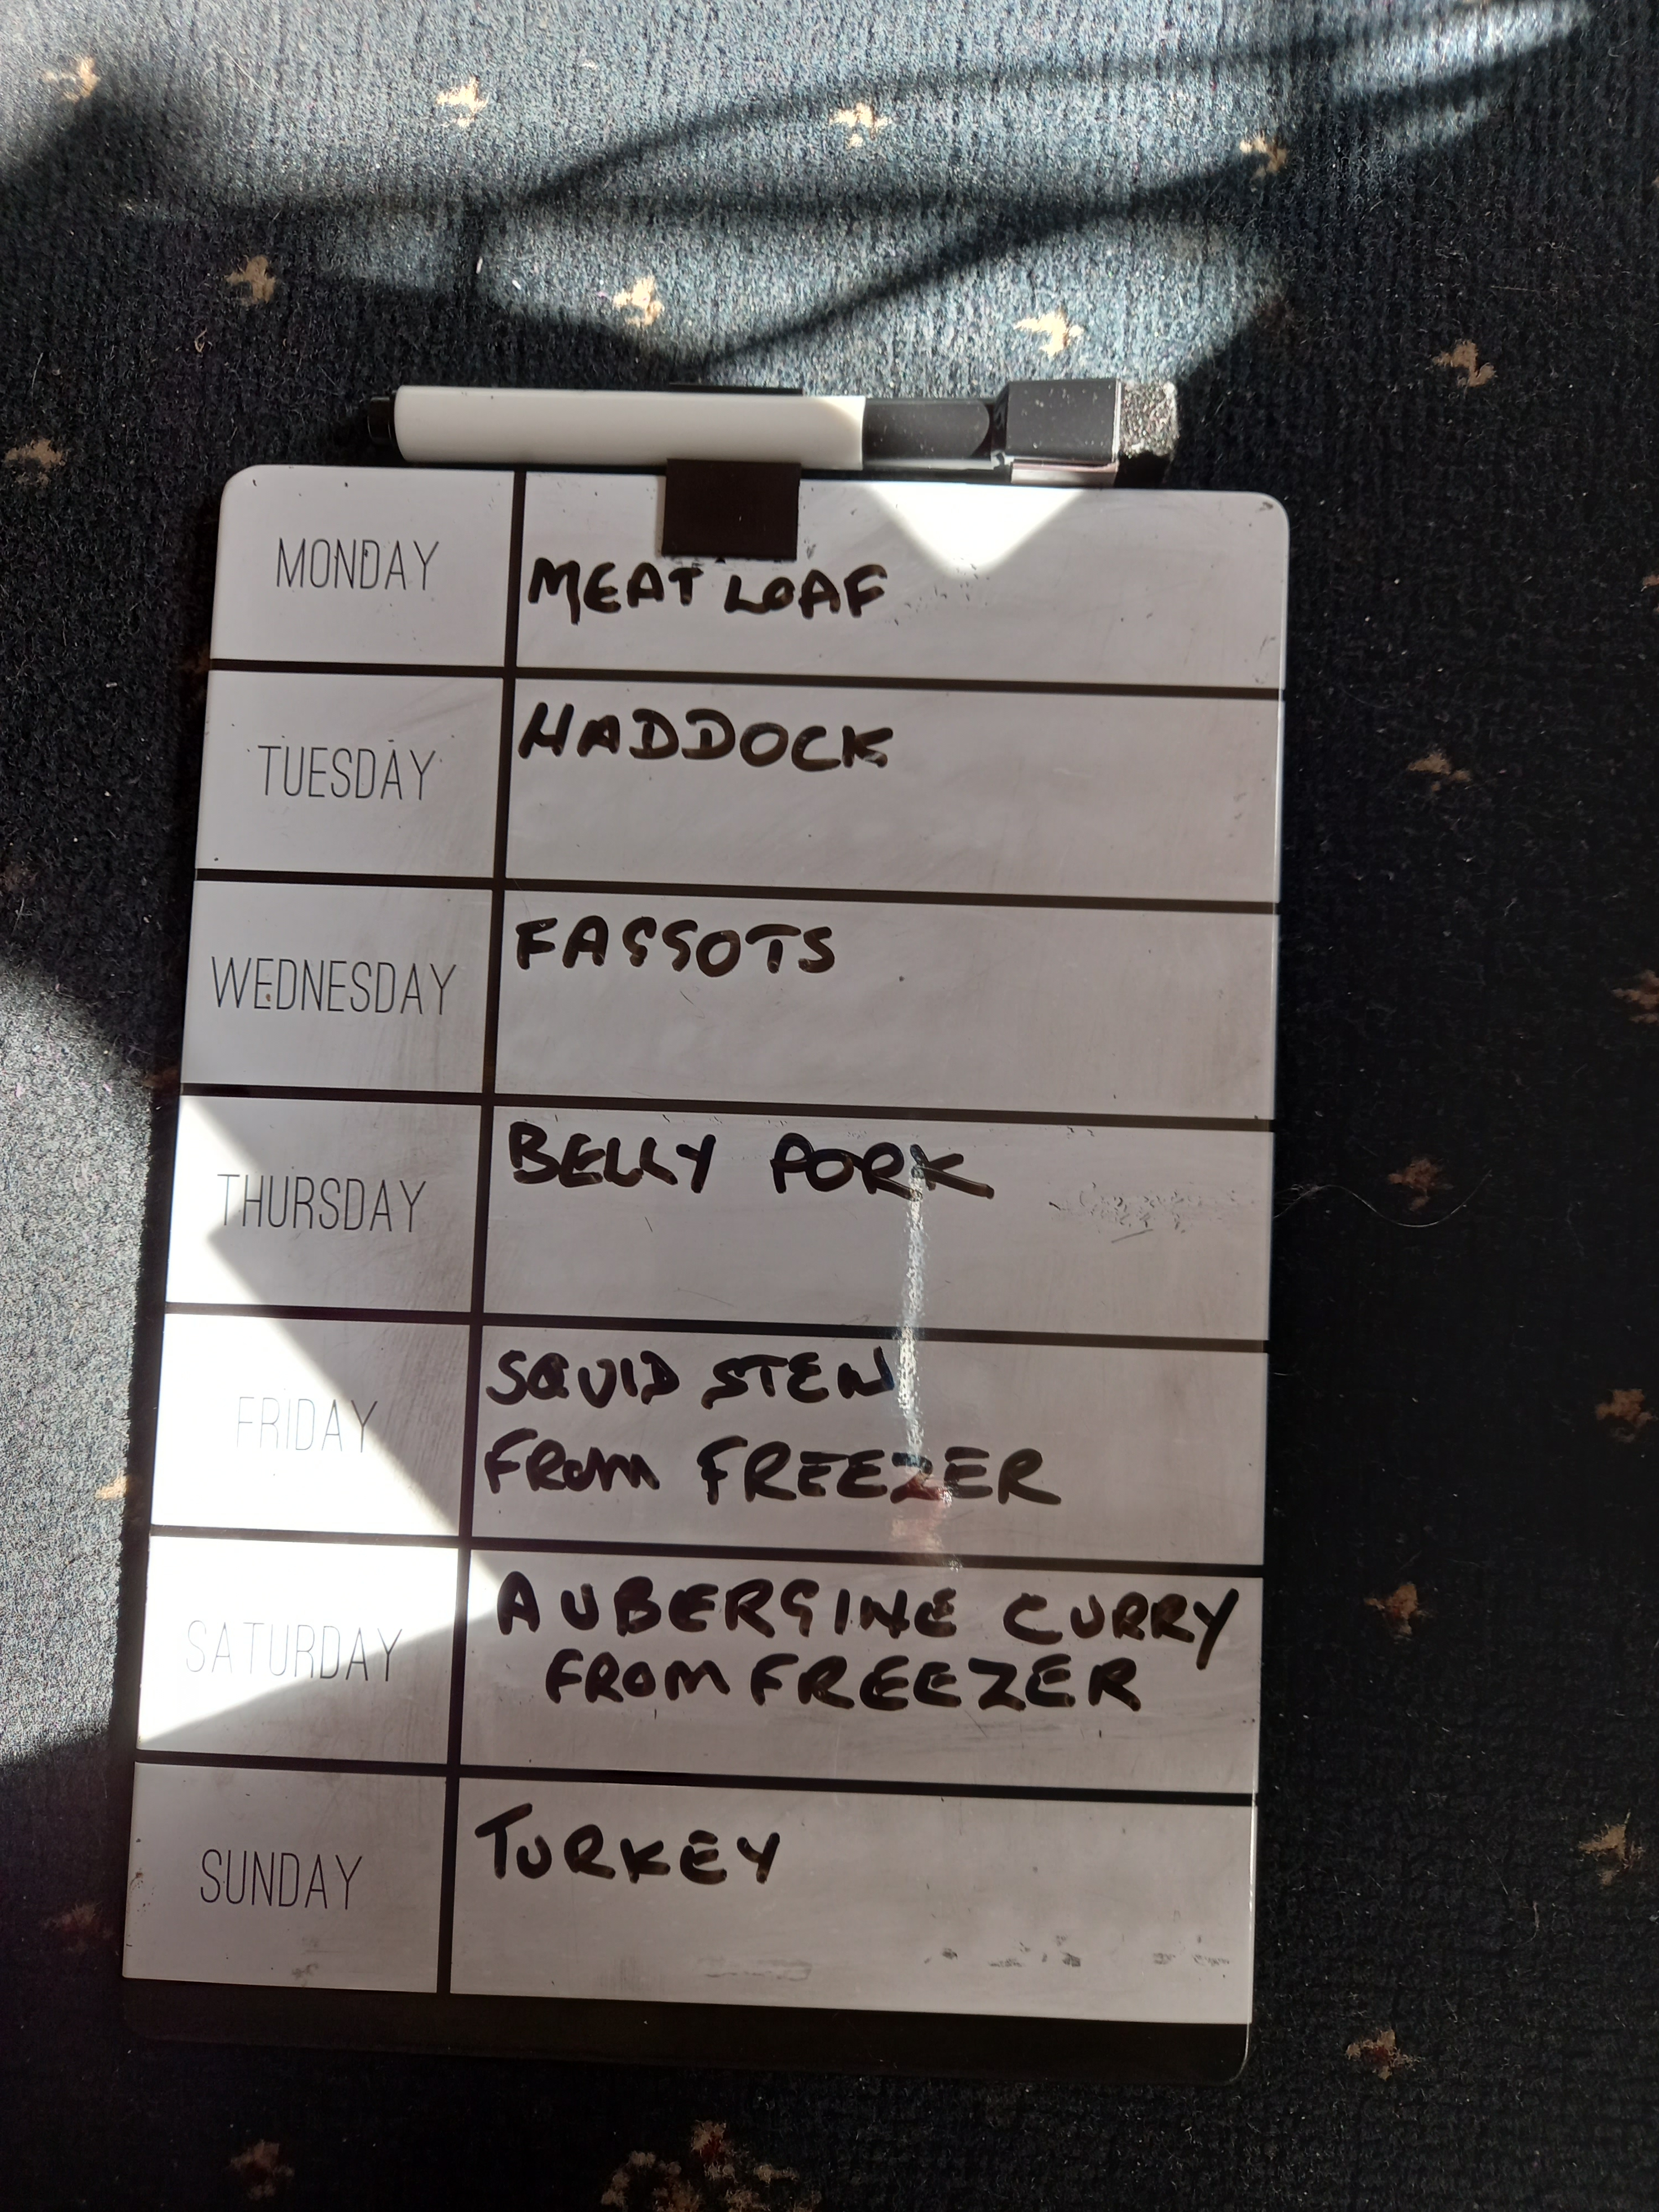 MONDAY
MEAT LOAF
TUESDAY
HADDOCK
WEDNESDAY
FAGGOTS
THURSDAY
BELLY PORK
FRIDAY
SQUID STEW
FROM FREEZER
SATURDAY
AUBERGINE CURRY
FROM FREEZER
SUNDAY
TURKEY